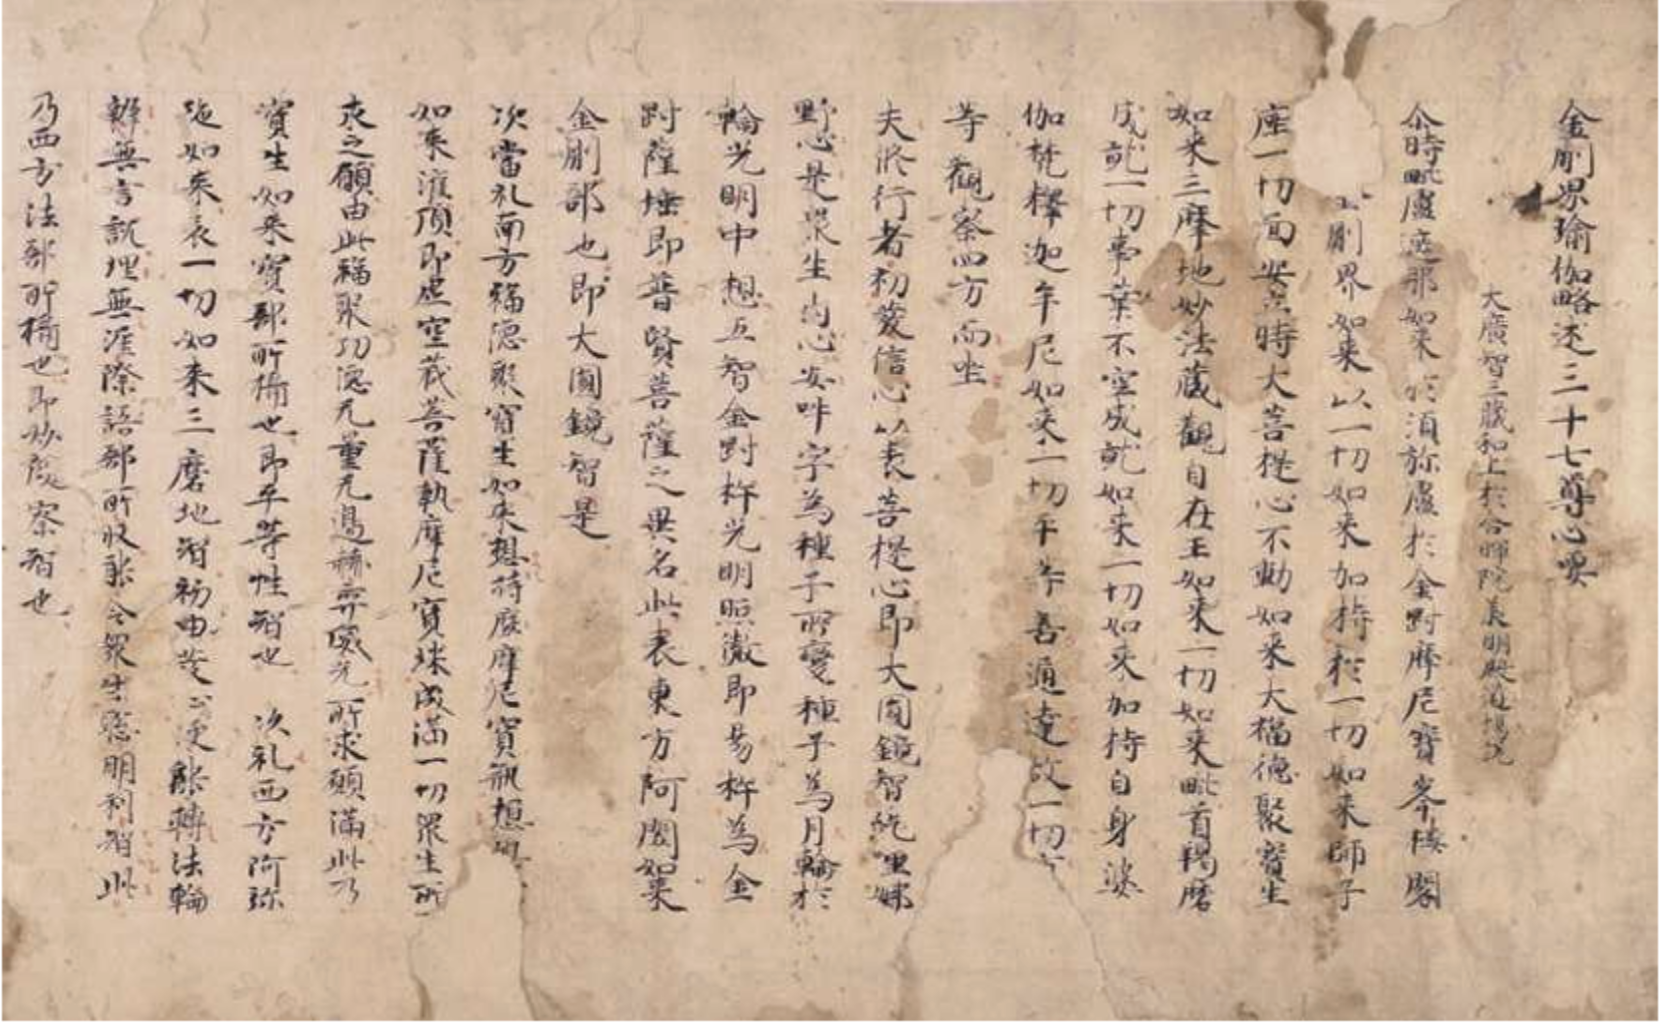 金剛界瑜伽略述三十七尊心要
大廣智三藏和上於含暉院承明殿道場說
尒時毗盧遮那如來於須弥盧於金對摩尼寶峯樓閣
剛界如来以一切如来加持於一切如来師子
座一切面安立時大菩提心不動如来大福德聚寶生
如来三摩地妙法藏觀自在王如来一切如来毗首羯磨
成就一切事業不空成就如来一切如来加持自身婆
伽梵釋迦牟尼如来一切平等善通達故一切
等觀察四方而坐
夫修行者初發信心以表菩提心即大圓鏡智紇里娜
野心是眾生肉心安吽字為種子所變種子為月輪於
輪光明中想五智金對杵光明照澈即易杵為金
對薩埵即普賢菩薩之異名此表東方阿閦如来
金剛部也即大圓鏡智是
次當礼南方福德聚寶生如来想持摩尼寶瓶想與
如来灌頂即虛空藏菩薩執摩尼寶珠成滿一切眾生所
求之願由此福聚功德无量无邊赫弈威光所求願滿此乃
寶生如来寶部所攝也即平等性智也 次礼西方阿弥
陁如来表一切如来三磨地智初由 心便能轉法輪
辯無言説理無涯際語部所收能令眾生聰明利智此
乃西方法部所攝也即妙觀察智也